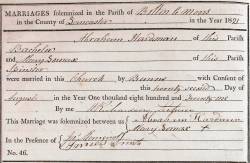 MARRIAGES solemnized in the Parish of Bolton le Moors
in the County of Lancaster in the Year 1821.
Abraham Hardman of this Parish
Bachelor
and Mary Bomax of this Parish
Spinster
were married in this Church by Banns with Consent of
this twenty second Day of
August in the Year One thousand eight hundred and twenty one
By me
This Marriage was solemnized between us Abraham Hardman
Mary Bomax +
In the Presence of
No. 46.